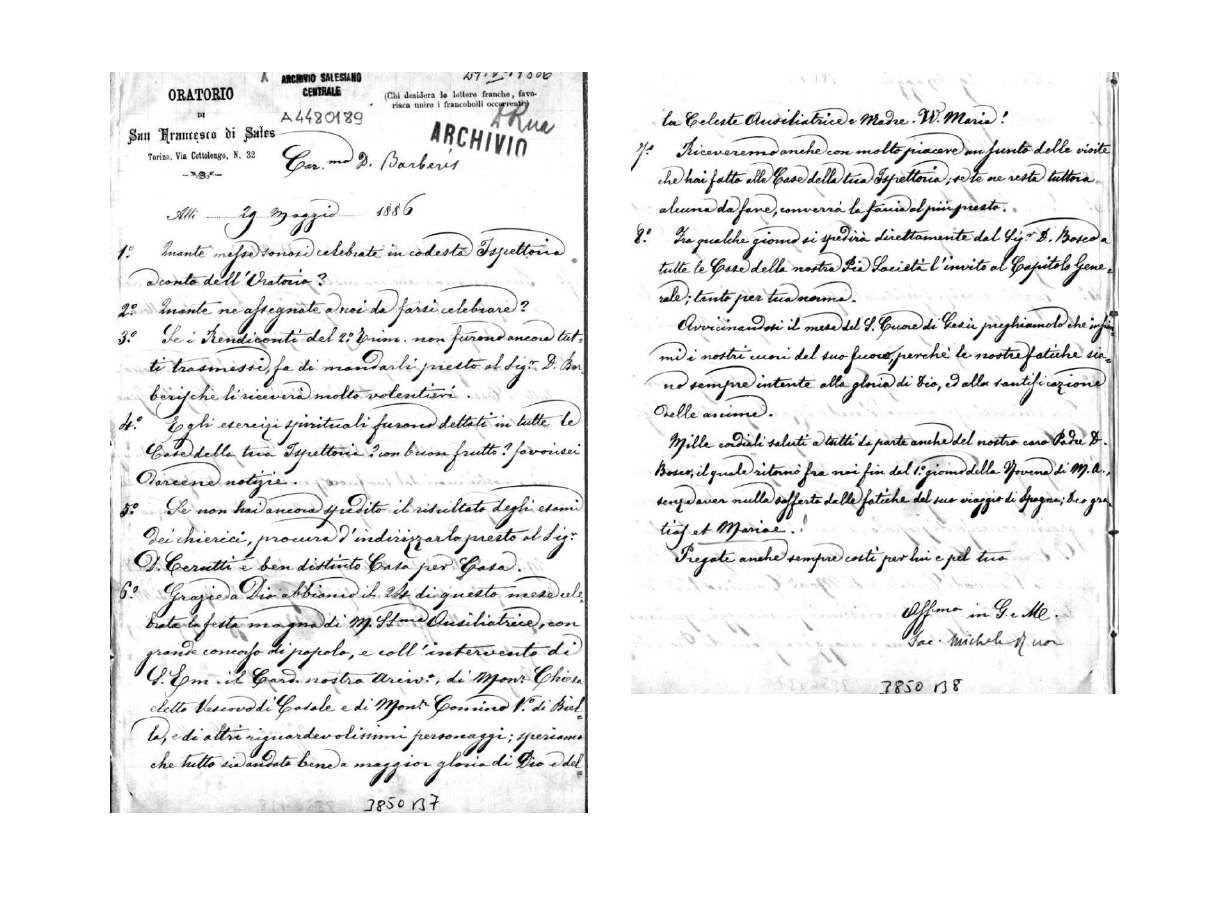 ARCHIVIO SALESIANO
CENTRALE
ORATORIO
DI
San Francesco di Sales
Torino, Via Cottolengo, N. 32
(Chi desidera le lettere franche, favo-
risca unire i francobolli occorrenti)
A4480189
D Rua
ARCHIVIO
Car.mo D. Barberis
Alli 29 Maggio 1886
1.° Quante messe sonosi celebrate in codesta Ispettoria
a conto dell'Oratorio?
2.° Quante ne assegnate a noi da farsi celebrare?
3.° Se i Rendiconti del 2.° Trim. non furono ancora tut-
ti trasmessi, fa di mandarli presto al Sig.r D. Bar
beris, che li riceverà molto volentieri.
4.° E gli esercizi spirituali furono dettati in tutte le
Case della tua Ispettoria? con buon frutto? favorisci
darcene notizie.
5.° Se non hai ancora spedito il risultato degli esami
dei chierici, procura d'indirizzarlo presto al Sig.r
D. Cerutti e ben distinto Casa per Casa.
6.° Grazie a Dio abbiamo il 24 di questo mese cele
brata la festa magna di M. SS.ma Ausiliatrice, con
grande concorso di popolo, e coll'intervento di
S. Em. il Card. nostro Arciv.°, di Mons.r Chiesa
eletto Vescovo di Casale e di Mons.r Comino V.° di Biel-
la, e di altri riguardevolissimi personaggi; speriamo
che tutto sia andato bene a maggior gloria di Dio e del
3850 B7
la Celeste Ausiliatrice e Madre. W. Maria!
7.° Riceveremo anche con molto piacere un sunto delle visite
che hai fatto alle Case della tua Ispettoria; se te ne resta tuttora
alcuna da fare, converrà la faccia al più presto.
8.° Fra qualche giorno si spedirà direttamente dal Sig.r D. Bosco a
tutte le Case della nostra Pia Società l'invito al Capitolo Gene-
rale; tanto per tua norma.
Avvicinandosi il mese del S. Cuore di Gesù preghiamolo che infiam-
mi i nostri cuori del suo fuoco, perchè le nostre fatiche sia-
no sempre intente alla gloria di Dio, ed alla santificazione
delle anime.
Mille cordiali saluti a tutti da parte anche del nostro caro Padre D.
Bosco, il quale ritornò fra noi fin del 1.° giorno della Novena di M. A.,
senza aver nulla sofferto delle fatiche del suo viaggio di Spagna; Deo gra-
tias et Mariae.!
Pregate anche sempre costì per lui e pel tuo
Aff.mo in G. e M.
Sac. Michele Rua
3850 B8